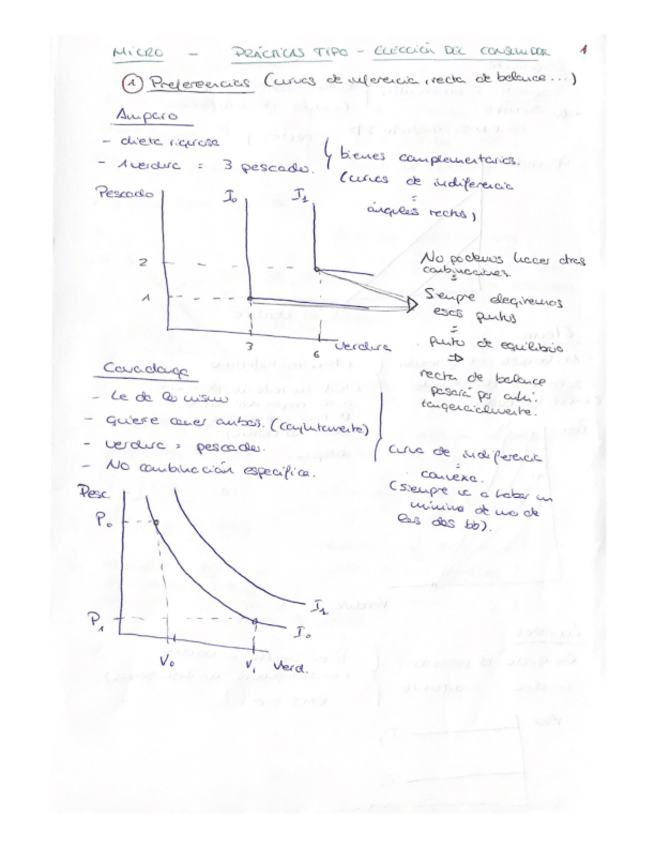 MICRO - PRÁCTICAS TIPO - ELECCIÓN DEL CONSUMIDOR 1
① Preferencias (curvas de inferencia, recta de balance...)
Amparo
- dieta rigurosa
- 1 verdura = 3 pescado.
bienes complementarios.
(curvas de indiferencia
=
ángulos rectos)
Pescado I₀ I₁
2
1
3 6 Verdura
No podemos hacer otras
combinaciones.
=
Siempre elegiremos
esos puntos
=
Punto de equilibrio
⇒
recta de balance
pasará por ahí.
tangencialmente.
Covadonga
- Le da lo mismo
- Quiere comer ambos. (conjuntamente)
- verdura = pescado.
- No combinación específica.
Curva de indiferencia
=
convexa.
(siempre va a haber un
mínimo de uno de
los dos bb).
Pesc.
P₀
P₁
I₁
I₀
V₀ V₁ Verd.